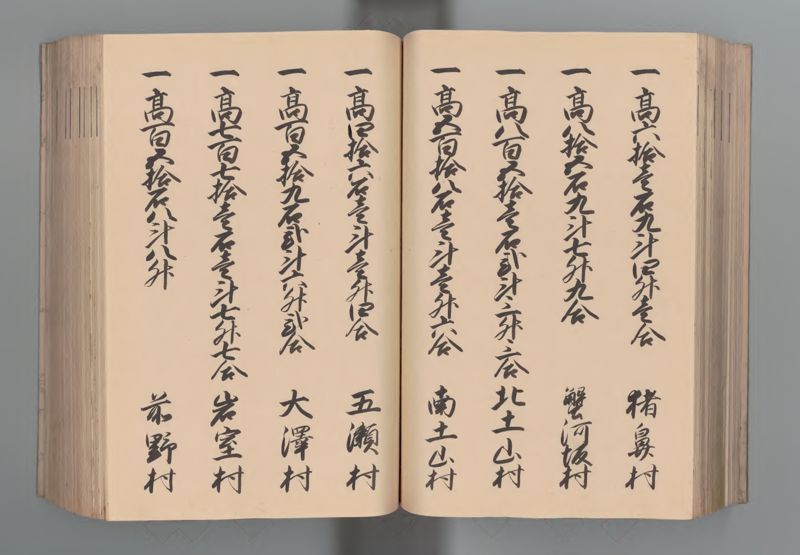 一高六拾壱石九斗四升壱合 猪鼻村
一高八拾五石九斗七升九合 蟹河坂村
一高八百五拾壱石弐斗三升三合 北土山村
一高五百拾八石壱斗壱升六合 南土山村
一高四拾六石壱斗壱升四合 五瀬村
一高百五拾九石弐斗六升弐合 大澤村
一高七百七拾壱石壱斗七升七合 岩室村
一高百五拾石八斗八升 前野村